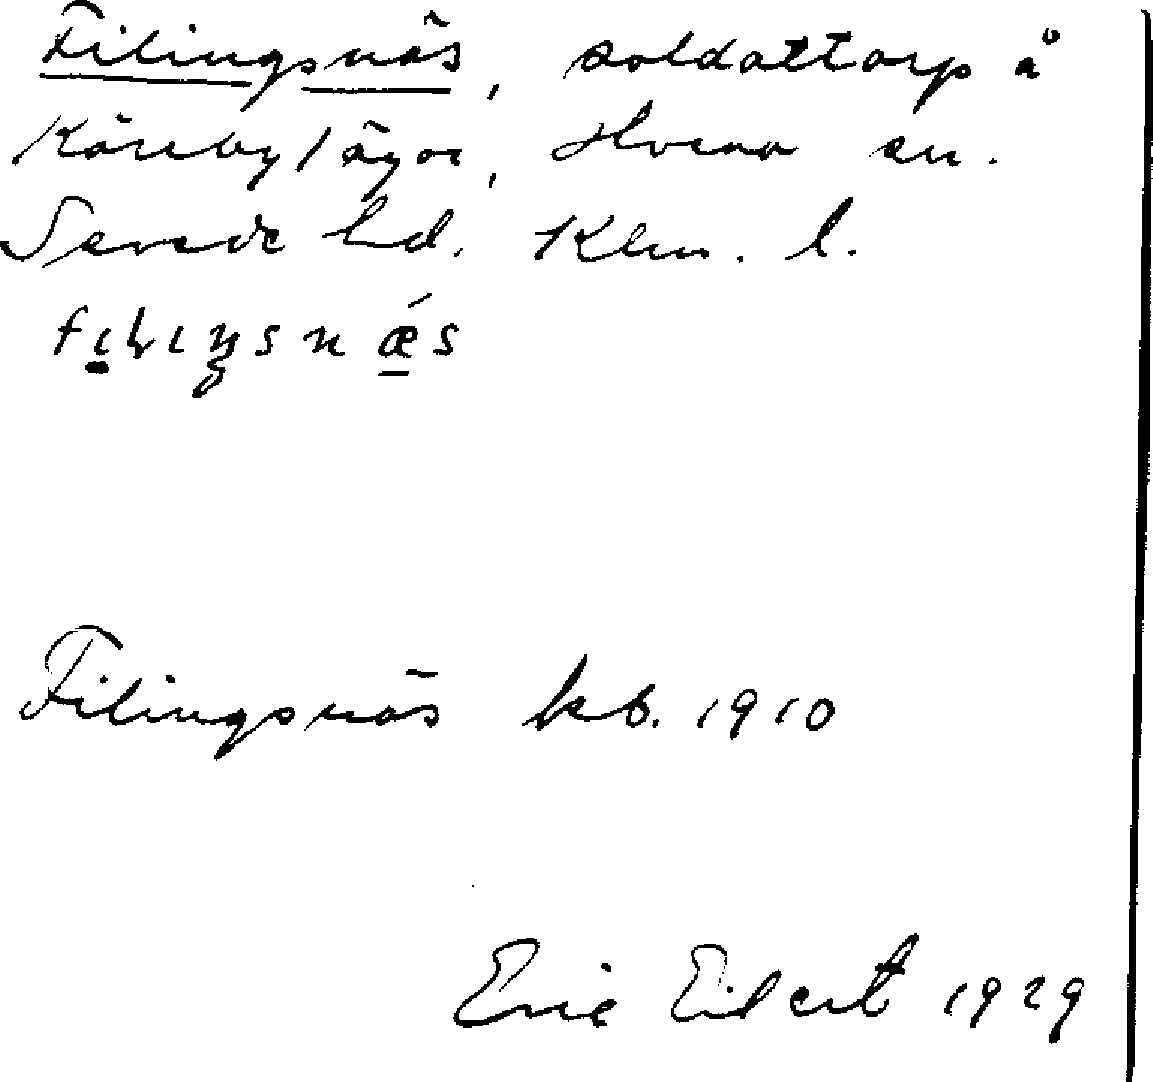 Filingsnäs, soldattorp å
Kärrby ägor, Hvena sn.
Sevede hd. Klm. l.
Filingsnäs kb. 1910
Eric Eilert 1929